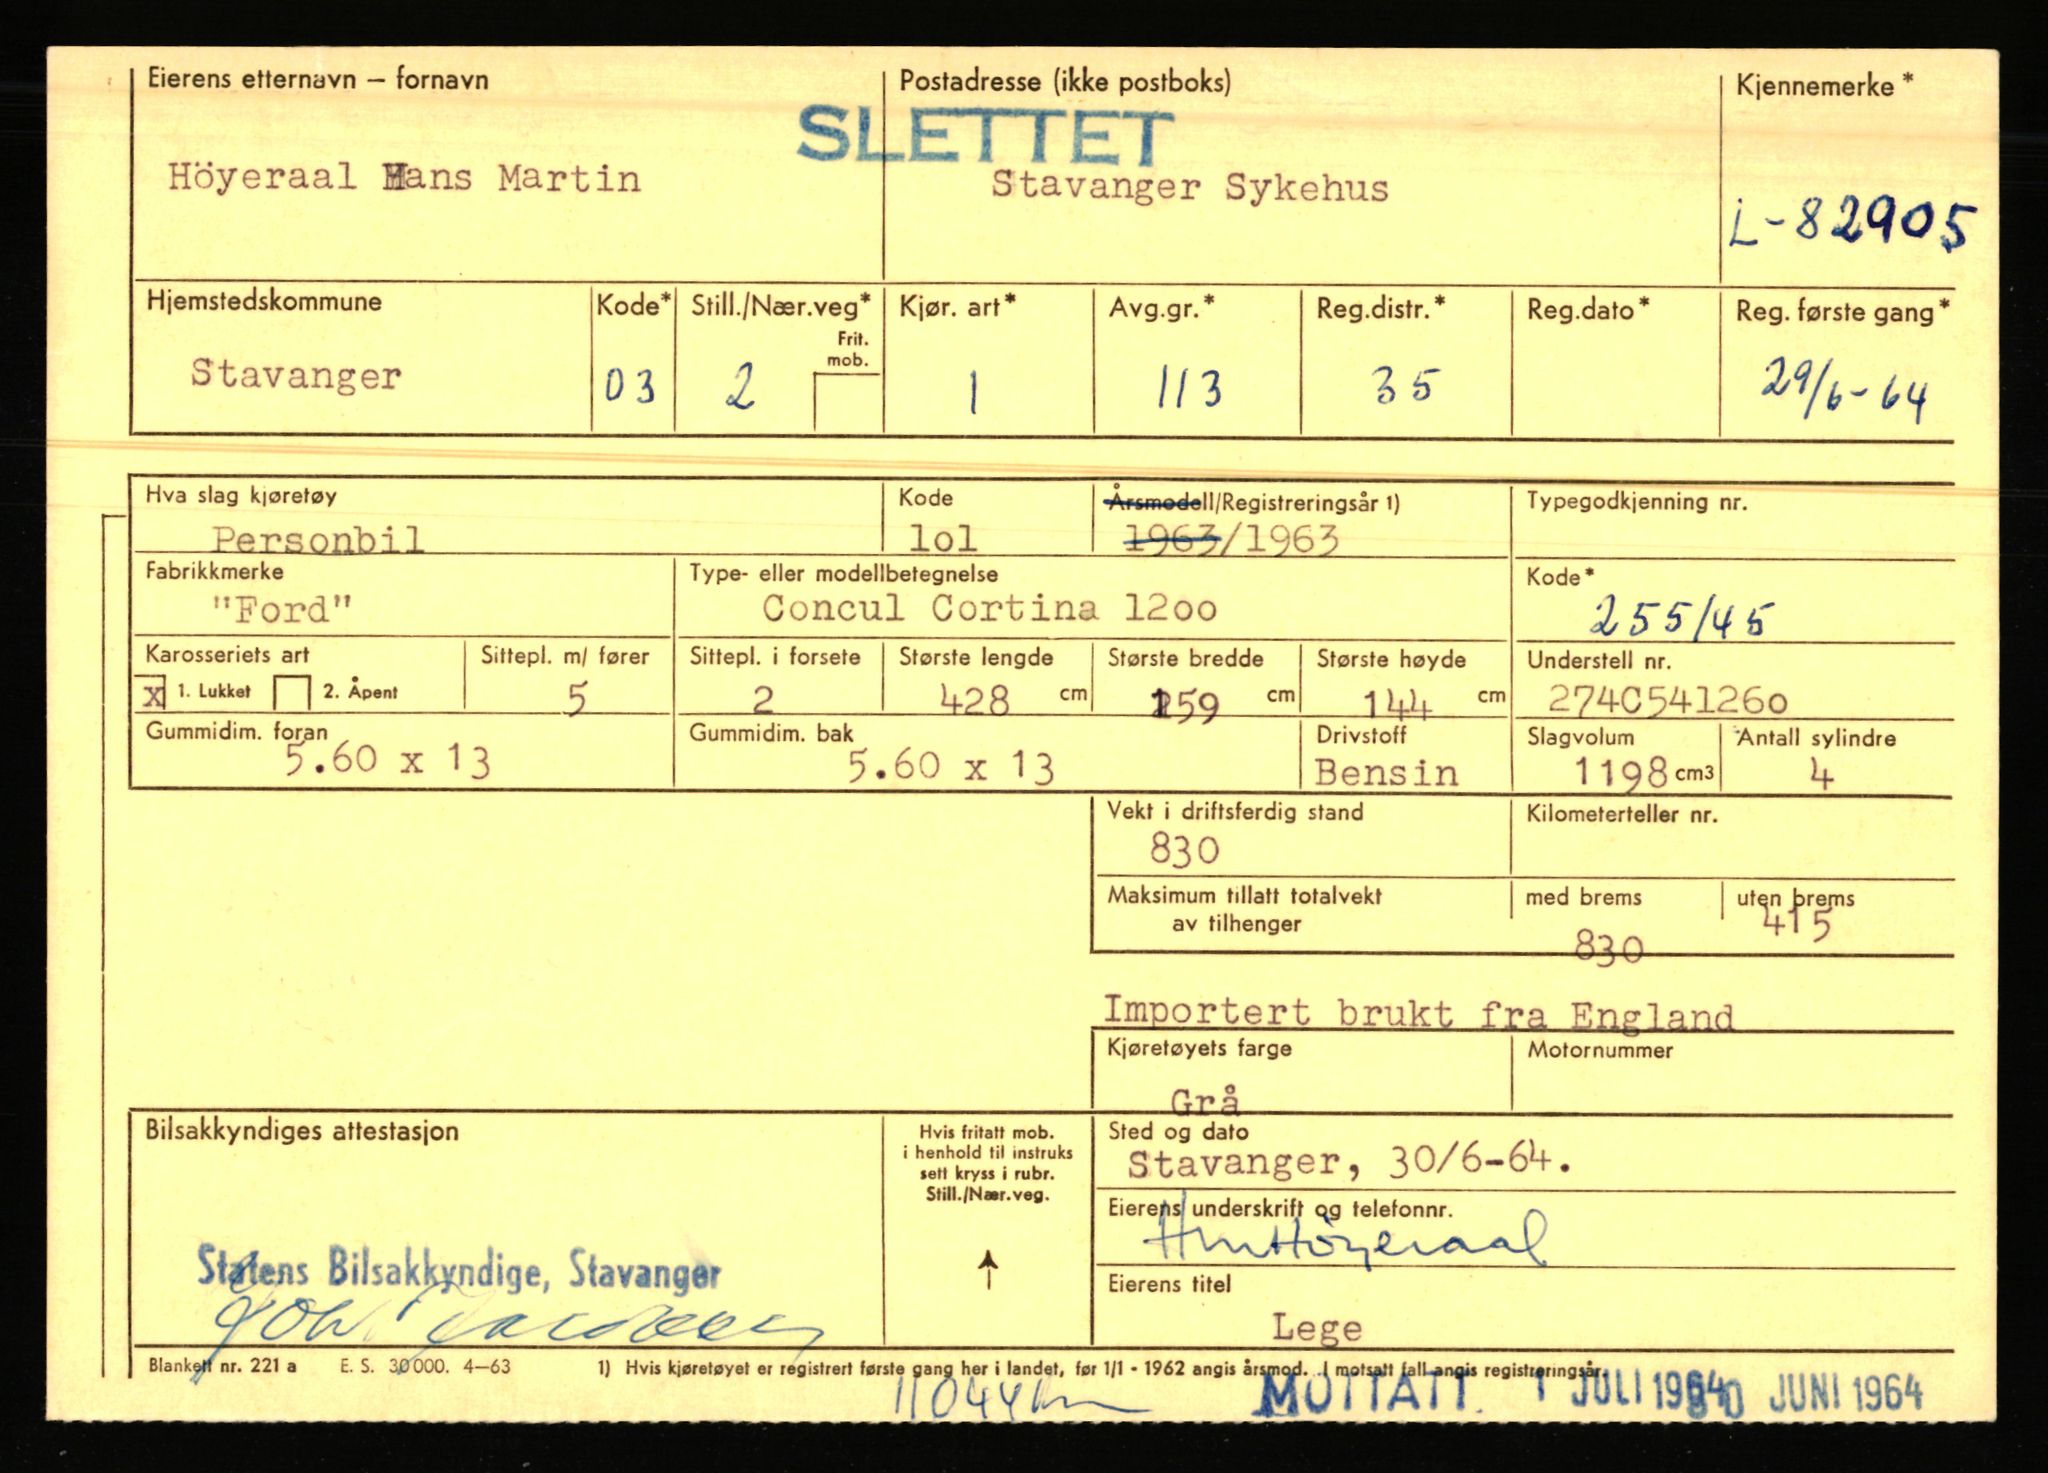 Eierens etternavn – fornavn
Postadresse (ikke postboks)
Kjennemerke*
SLETTET
Höyeraal Hans Martin
Stavanger Sykehus
L-82905
Hjemstedskommune
Kode*
Still./Nær.veg*
Frit. mob.
Kjør. art*
Avg.gr.*
Reg.distr.*
Reg.dato*
Reg. første gang*
Stavanger
03
2
1
113
35
29/6-64
Hva slag kjøretøy
Kode
Årsmodell/Registreringsår 1)
Typegodkjenning nr.
Personbil
lol
1963/1963
Fabrikkmerke
Type- eller modellbetegnelse
Kode*
"Ford"
Concul Cortina 12oo
255/45
Karosseriets art
Sittepl. m/ fører
Sittepl. i forsete
Største lengde
Største bredde
Største høyde
Understell nr.
x 1. Lukket
2. Åpent
5
2
428 cm
159 cm
144 cm
274C54126o
Gummidim. foran
Gummidim. bak
Drivstoff
Slagvolum
Antall sylindre
5.60 x 13
5.60 x 13
Bensin
1198 cm3
4
Vekt i driftsferdig stand
Kilometerteller nr.
830
Maksimum tillatt totalvekt
av tilhenger
med brems
uten brems
830
415
Importert brukt fra England
Kjøretøyets farge
Motornummer
Grå
Bilsakkyndiges attestasjon
Hvis fritatt mob.
i henhold til instruks
sett kryss i rubr.
Still./Nær.veg.
Sted og dato
Stavanger, 30/6-64.
Eierens underskrift og telefonnr.
HMHöyeraal
Statens Bilsakkyndige, Stavanger
Eierens titel
Lege
Blankett nr. 221 a
E. S. 30000. 4–63
1) Hvis kjøretøyet er registrert første gang her i landet, før 1/1 - 1962 angis årsmod. I motsatt fall angis registreringsår.
11044 km
MOTTATT
1 JULI 1964
30 JUNI 1964